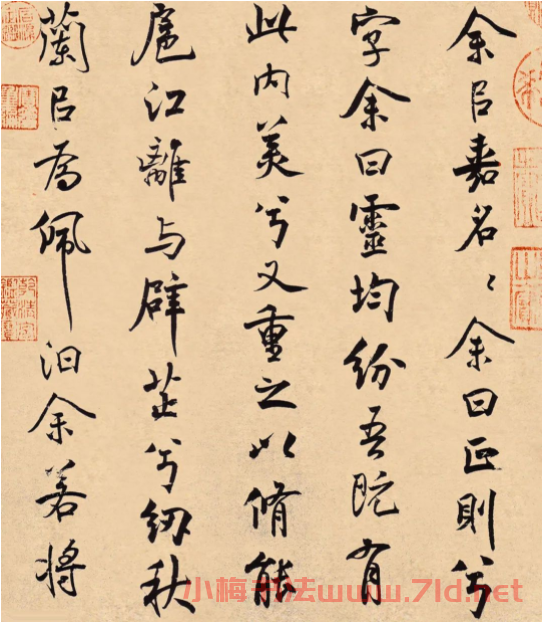 余㠯嘉名〻余曰正則兮
字余曰靈均紛吾既有
此內美兮又重之以脩能
扈江離与辟芷兮紉秋
蘭㠯為佩汩余若將
小梅书法www.7ld.net